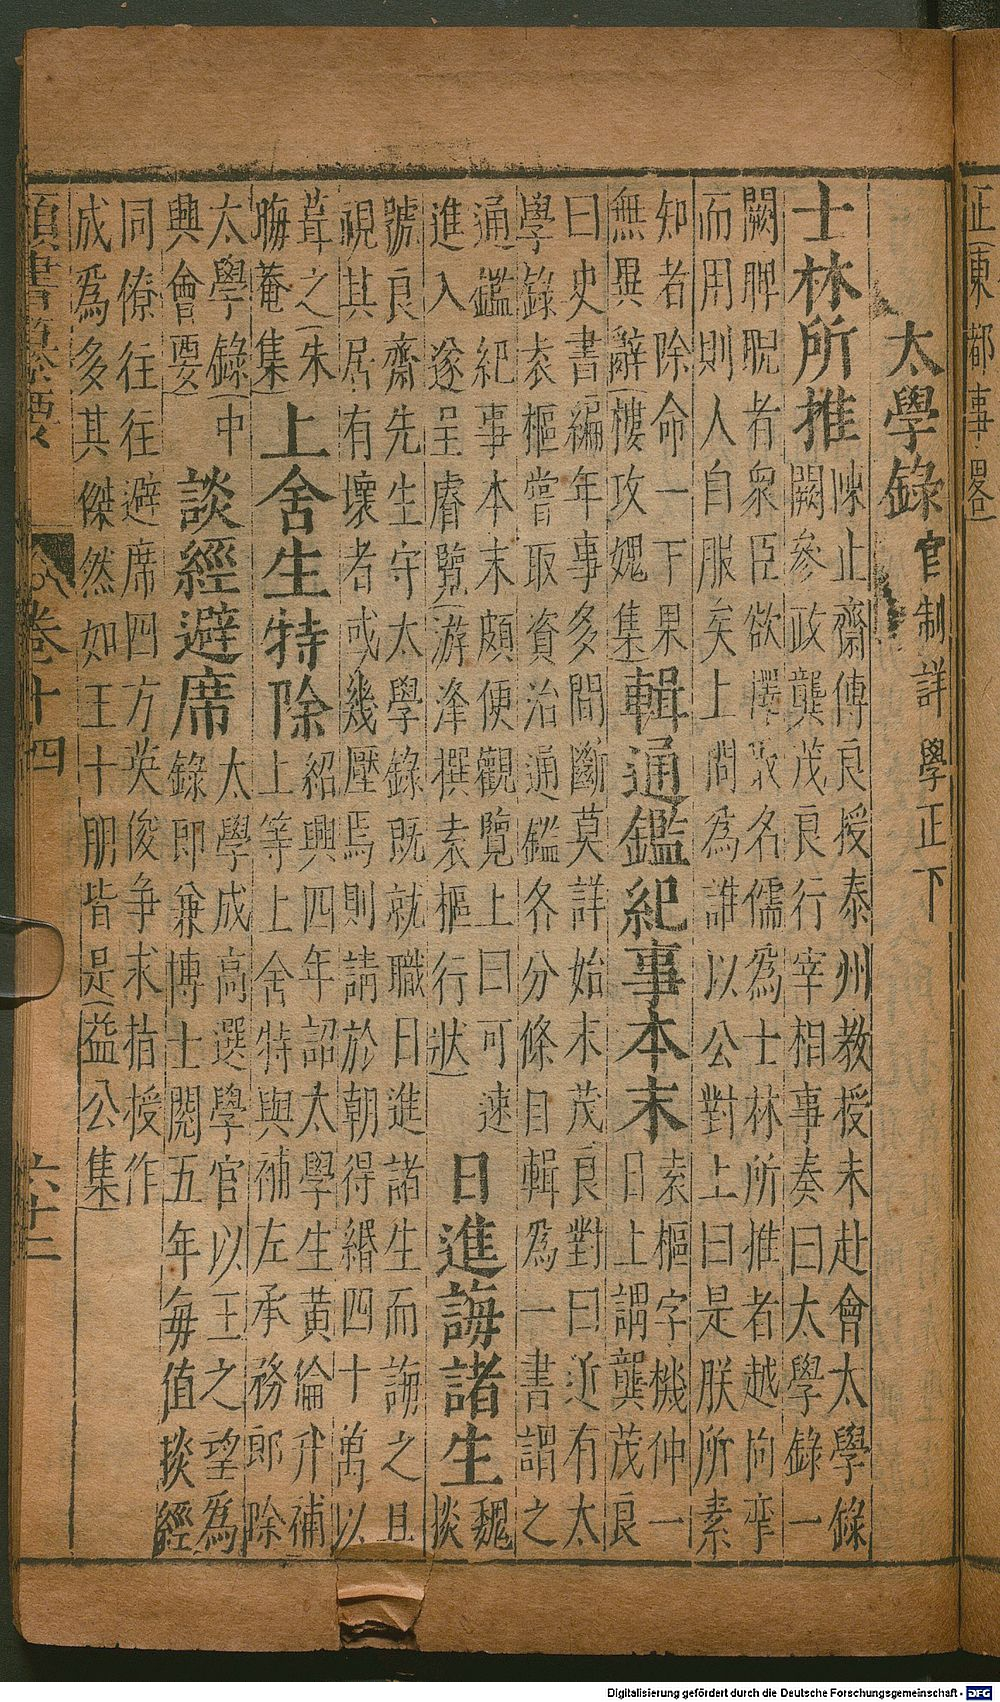 正(東都事畧)
太學錄官制詳學正下
士林所推
陳止齋傅良授泰州教授未赴會太學錄
闕參政龔茂良行宰相事奏曰太學錄一
闕脾睨者衆臣欲擇取名儒爲士林所推者越拘攣
而用則人自服矣上問爲誰以公對上曰是朕所素
知者除命一下果
無異辭(樓攻媿集)
輯通鑑紀事本末
袁樞字機仲一
日上謂龔茂良
曰史書編年事多間斷莫詳始末茂良對曰近有太
學錄袁樞嘗取資治通鑑各分條目輯爲一書謂之
通鑑紀事本末頗便觀覽上曰可速
進入遂呈睿覽(游澤撰袁樞行狀)
日進誨諸生
魏
掞
號艮齋先生守太學錄既就職日進諸生而誨之且
視其居有壞者或幾壓焉則請於朝得緡四十萬以
葺之(朱
晦菴集)
上舍生特除
紹興四年詔太學生黃倫升補
上等上舍特與補左承務郎除
太學錄(中
興會要)
談經避席
太學成高選學官以王之望爲
錄即兼博士閱五年每值掞經
同僚往往避席四方英俊爭求指授作
成爲多其傑然如王十朋皆是(益公集)
卷十四
六十二
Digitalisierung gefördert durch die Deutsche Forschungsgemeinschaft - DFG